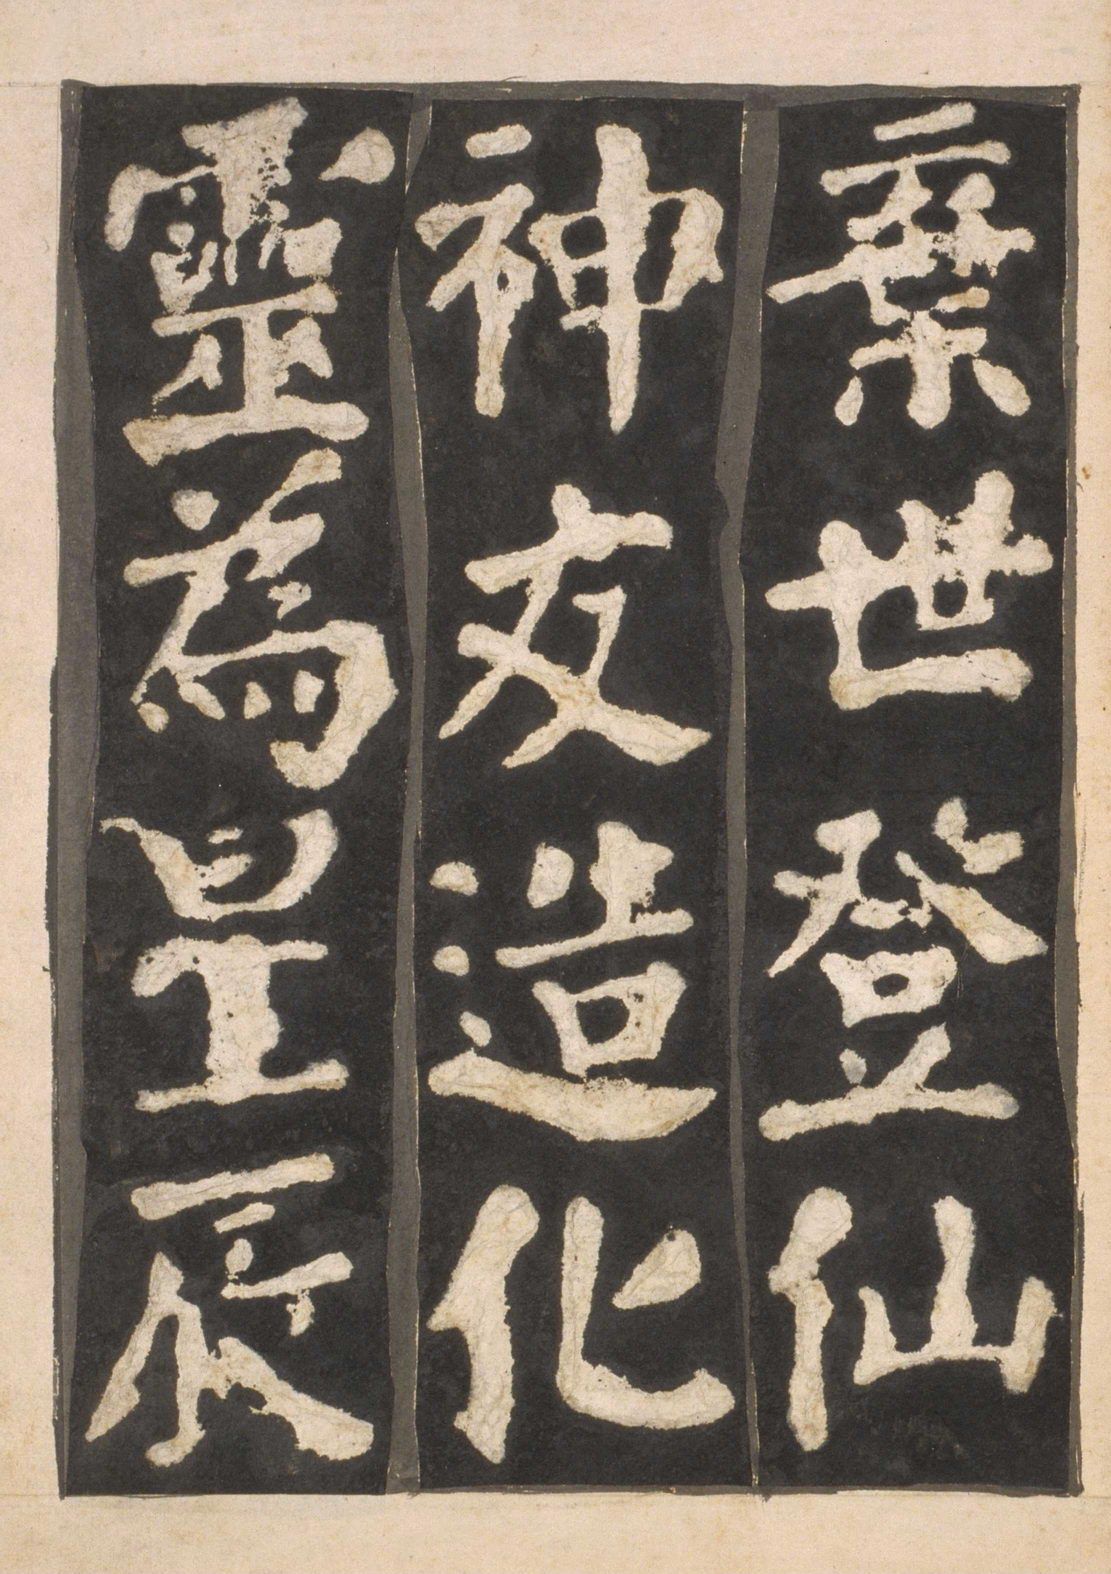 棄世登仙
神友造化
靈為星辰